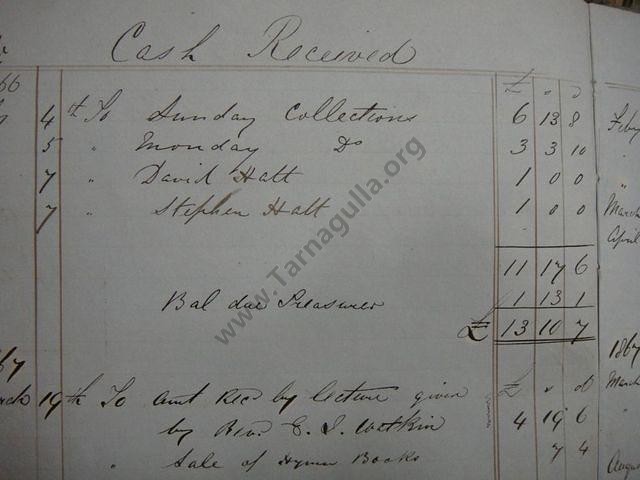 Cash Received
66
£ s d
4th To Sunday Collections 6 13 8
Feby
5 " Monday Do 3 3 10
7 " David Hatt 1 0 0
7 " Stephen Hatt 1 0 0
March
April
11 17 6
Bal due Treasurer 1 13 1
£ 13 10 7
67
1867
£ s d
19th To amt Recd by lecture given
March
by Revd 4 19 6
" Sale of Hymn Books 7 4
www.Tarnagulla.org